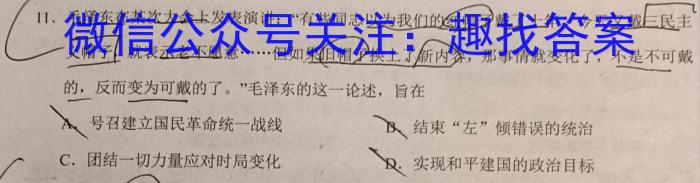 11. 毛泽东在某次大会上发表演讲:“有些同志以为我们的
微信公众号关注:趣找答案
三民主
就表示老不愿意……但如果旧帽子换上了新内容,那事情就变化了,不是不可戴
的,反而变为可戴的了。”毛泽东的这一论述,旨在
A. 号召建立国民革命统一战线
B. 结束“左”倾错误的统治
C. 团结一切力量应对时局变化
D. 实现和平建国的政治目标